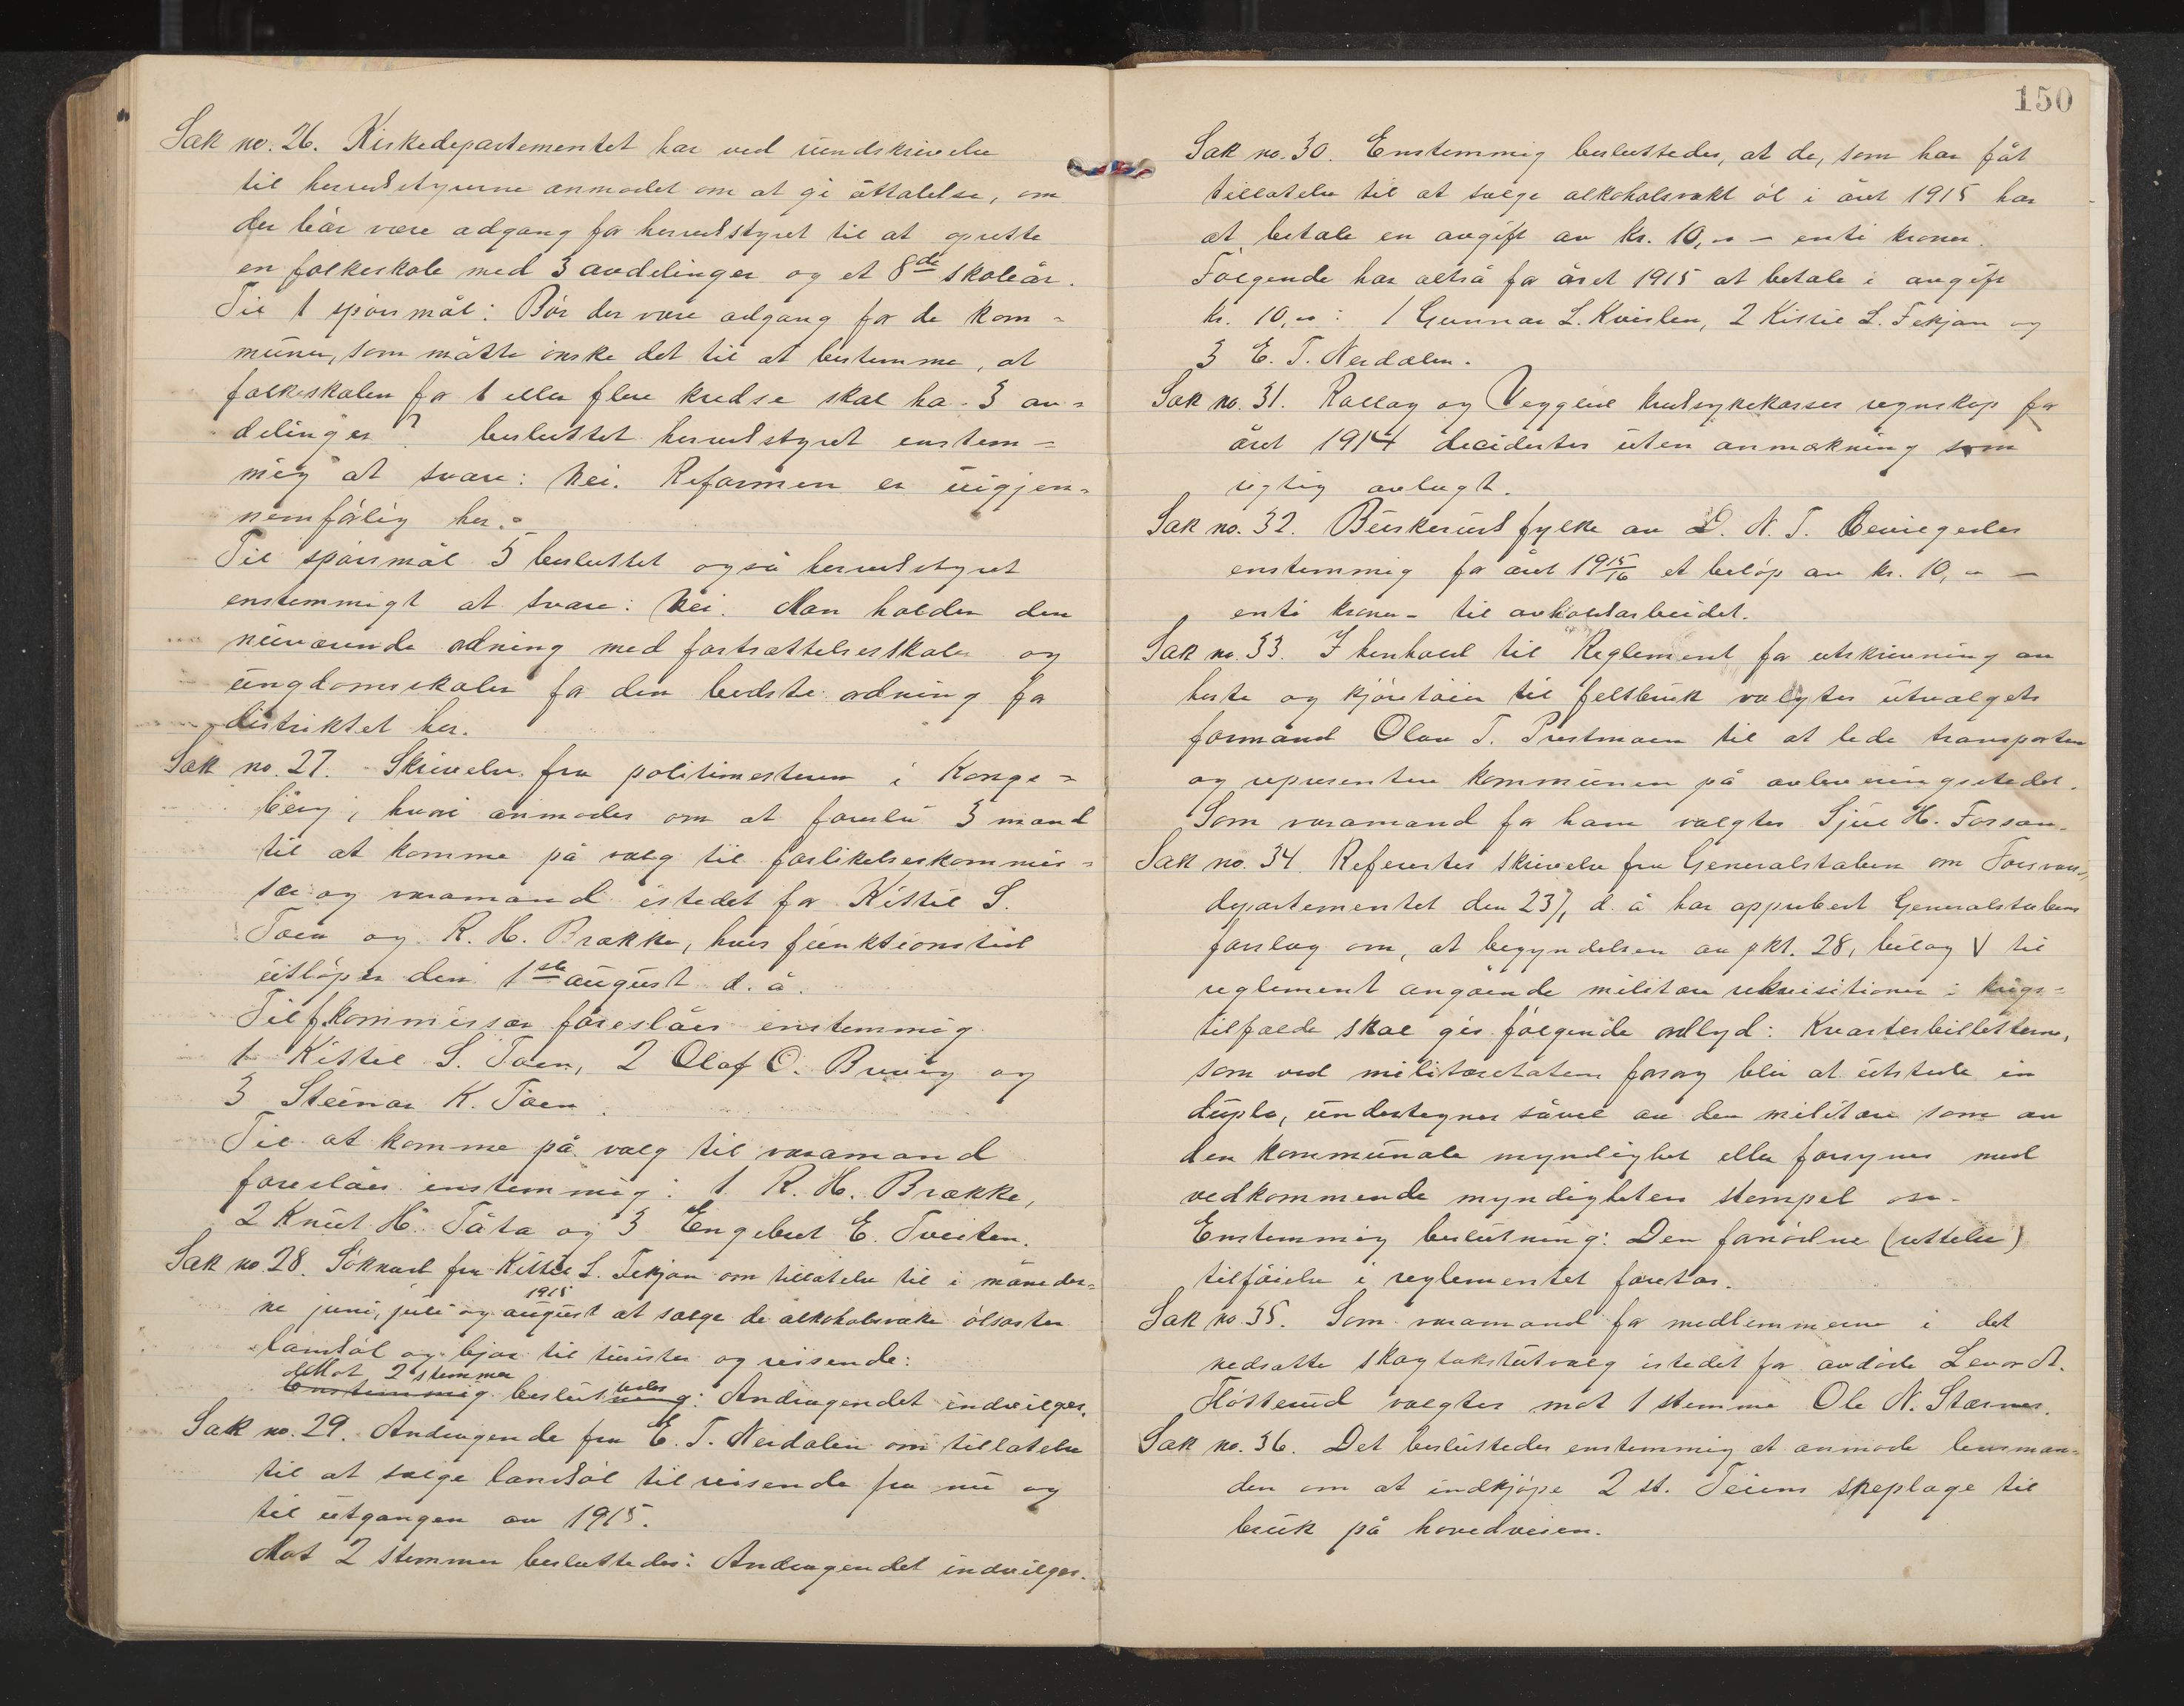 Sak no. 26. Kirkedepartementet har ved rundskrivelse
til herredstyrerne anmodet om at gi uttalelse, om
der bör være adgang for herredstyret til at oprette
en folkeskole med 3 avdelinger og et 8de skoleår.
Til 1 spörsmål: Bör der være adgang for de kom-
muner, som måtte önske det til at bestemme, at
folkeskolen for 1 eller flere kredse skal ha 3 av-
delinger? besluttet herredstyret enstem-
mig at svare: Nei. Reformen er uigjen-
nemförlig her.
Til spörsmål 5 besluttet også herredstyret
enstemmigt at svare: Nei. Man holder den
nuværende ordning med fortsættelsesskoler og
ungdomsskoler for den bedste ordning for
distriktet her.
Sak no. 27. Skrivelse fra politimesteren i Kongs-
berg, hvori anmodes om at foreslå 3 mænd
til at komme på valg til forlikelseskommis-
sær og varamand istedet for Kittil S.
Toen og R. H. Brække, hvis funktionstid
utlöper den 1ste august d. å.
Til f.kommissær foreslåes enstemmig
1 Kittil S. Toen, 2 Olaf O. Bruvig og
3 Steinar K. Toen.
Til at komme på valg til varamand
foreslåes enstemmig: 1 R. H. Brække,
2 Knut H. Tåta og 3 Engebret E. Tveiten.
Sak no. 28. Söknad fra Kittil L. Fekjan om tillatelse til i måneder-
1915
ne juni, juli og august at sælge de alkoholsvake ölsorter
landsöl og bjor til turister og reisende:
Mot 2 stemmer
Enstemmig beslutning tedes: Andragendet indvilges.
Sak no. 29. Andragende fra E. T. Nerdalen om tillatelse
til at sælge landsöl til reisende fra nu og
til utgangen av 1915.
Mot 2 stemmer besluttedes: Andragendet indvilges.
150
Sak no. 30. Enstemmig besluttedes, at de, som har fåt
tillatelse til at sælge alkoholsvakt öl i året 1915 har
at betale en avgift av kr. 10,00 – enti kroner.
Fölgende har altså for året 1915 at betale i avgift
kr. 10,00: 1 Gunnar L. Kvislen, 2 Kittil L. Fekjan og
3 E. T. Nerdalen.
Sak no. 31. Rollag og Veggli kredssykekasses regnskap for
året 1914 decidertes uten anmerkning som
rigtig avlagt.
Sak no. 32. Buskerud fylke av D. N. T. Beviegedes
enstemmig for året 1915/16 et belöp av kr. 10,00 –
enti kroner – til avholdsarbeidet.
Sak no. 33. I henhold til Reglement for utskrivning av
heste og kjöretöier til feltbruk valgtes utvalgets
formand Olav T. Prestmoen til at lede transporten
og representere kommunen på avleveringsstedet.
Som varamand for ham valgtes Sjul H. Forsan.
Sak no. 34. Refertes skrivelse fra Generalstaben om Forsvars-
departementet den 23/1 d. å har approbert Generalstabens
forslag om, at begyndelsen av pkt. 28, bilag V til
reglement angående militære rekvisitioner i krigs-
tilfælde skal gis fölgende ordlyd: Kvarterbilletterne,
som ved militæretatens forsorg blir at utstede in
duplo, undertegnes såvel av den militære som av
den kommunale myndighet eller forsynes med
vedkommende myndigheters stempel osv.
Enstemmig beslutning: Den fornödne (rettelse)
tilföielse i reglementet foretas.
Sak no. 35. Som varamand for medlemmerne i det
nedsatte skogtakstutvalg istedet for avdöde Levord
Flösterud valgtes mot 1 stemme Ole N. Stærnes.
Sak no. 36. Det besluttedes enstemmig at anmode lensman-
den om at indkjöpe 2 st. Teiens sneploge til
bruk på hovedveien.